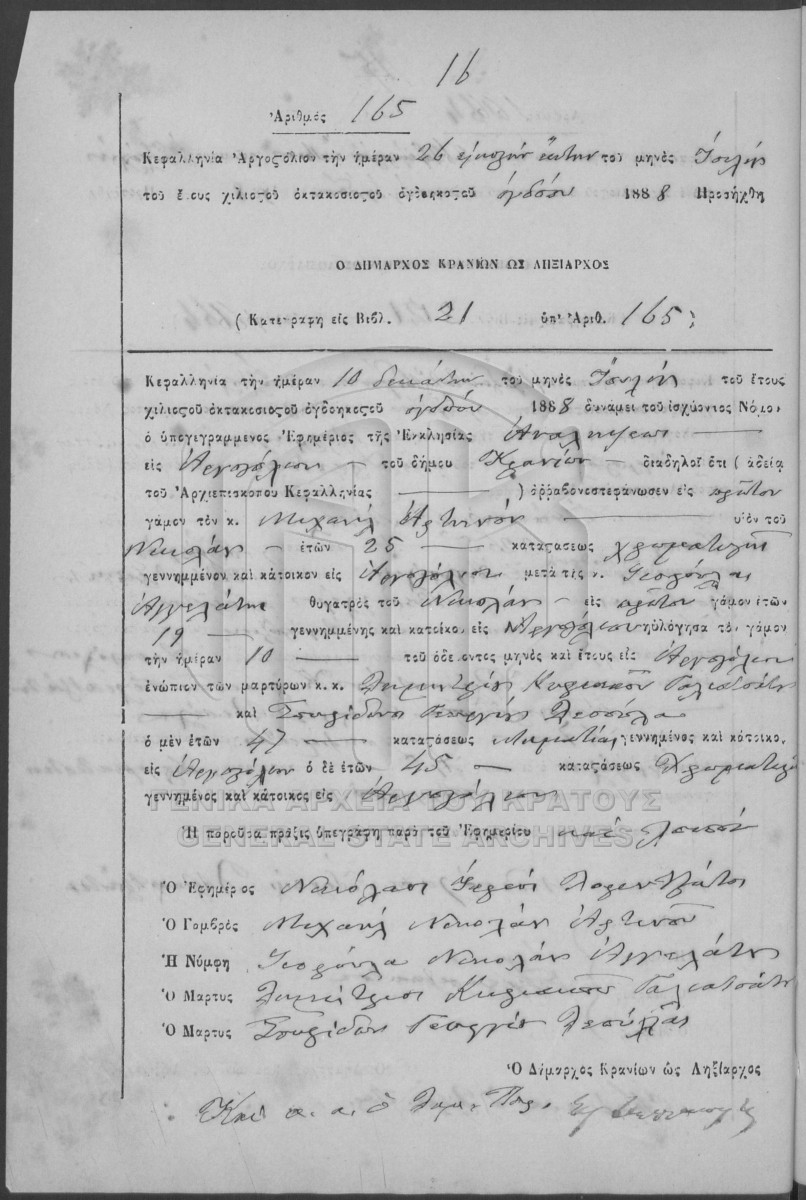 16
Ἀριθμός 165
Κεφαλληνία Ἀργοστόλιον τὴν ἡμέραν 26 εἰκοστὴν ἕκτην τοῦ μηνὸς Ἰουλίου
τοῦ ἔτους χιλιοστοῦ ὀκτακοσιοστοῦ ὀγδοηκοστοῦ ὀγδόου 1888 Προσήχθη
Ο ΔΗΜΑΡΧΟΣ ΚΡΑΝΙΩΝ ΩΣ ΛΗΞΙΑΡΧΟΣ
(Κατεγράφη εἰς Βιβλ. 21 ὑπ' Ἀριθ. 165)
Κεφαλληνία τὴν ἡμέραν 10 δεκάτην τοῦ μηνὸς Ἰουλίου τοῦ ἔτους
χιλιοστοῦ ὀκτακοσιοστοῦ ὀγδοηκοστοῦ ὀγδόου 1888 δυνάμει τοῦ ἰσχύοντος Νόμου
ὁ ὑπογεγραμμένος Ἐφημέριος τῆς Ἐκκλησίας Ἀναλήψεως
εἰς Ἀργοστόλιον τοῦ δήμου Κρανίων διαδηλοῖ ὅτι (ἀδείᾳ
τοῦ Ἀρχιεπισκόπου Κεφαλληνίας ) ἀρραβωνοστεφάνωσεν εἰς πρῶτον
γάμον τὸν κ. Μιχαὴλ Ἀρτινόν υἱὸν τοῦ
Νικολάου ἐτῶν 25 καταστάσεως
γεννημμένον καὶ κάτοικον εἰς Ἀργοστόλιον μετὰ τῆς κ.
Ἀγγελάτου θυγατρὸς τοῦ Νικολάου εἰς πρῶτον γάμον ἐτῶν
19 γεννημμένης καὶ κατοίκου εἰς Ἀργοστόλιον ηὐλόγησα τὸν γάμον
τὴν ἡμέραν 10 τοῦ ὁδεύοντος μηνὸς καὶ ἔτους εἰς Ἀργοστόλιον
ἐνώπιον τῶν μαρτύρων κ. κ. Δημητρίου Κυριακοῦ Γαλιατσάτου
καὶ Σπυρίδωνος Γεωργίου
ὁ μὲν ἐτῶν 47 καταστάσεως γεννημένος καὶ κάτοικος
εἰς Ἀργοστόλιον ὁ δὲ ἐτῶν 45 καταστάσεως
γεννημένος καὶ κάτοικος εἰς Ἀργοστόλιον
ΓΕΝΙΚΑ ΑΡΧΕΙΑ ΤΟΥ ΚΡΑΤΟΥΣ
Ἡ παροῦσα πρᾶξις ὑπεγράφη παρὰ τοῦ Ἐφημερίου καὶ λοιπῶν
GENERAL STATE ARCHIVES
Ὁ Ἐφημέριος Νικόλαος Ἱερεὺς Λορεντζάτος
Ὁ Γαμβρός Μιχαὴλ Νικολάου Ἀρτινός
Ἡ Νύμφη Νικολάου Ἀγγελάτου
Ὁ Μάρτυς Δημήτριος Κυριακοῦ Γαλιατσάτος
Ὁ Μάρτυς Σπυρίδων Γεωργίου
Ὁ Δήμαρχος Κρανίων ὡς Ληξίαρχος
ὁ Δημ. Παρ.